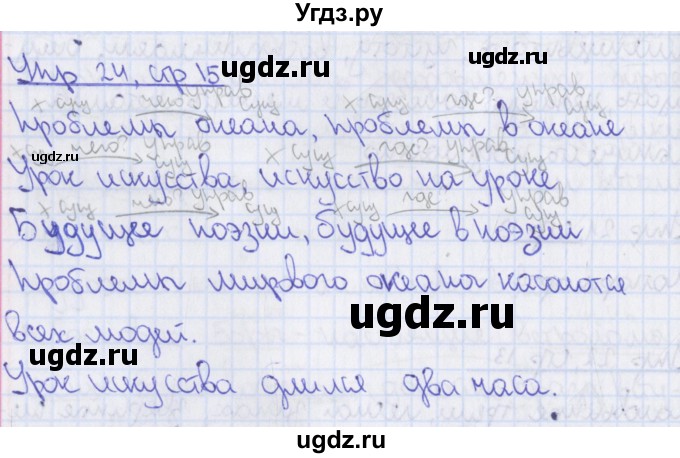 Угдз.ру
Упр 24, стр 15
ugdz.ru
х сущ чего? управ сущ х сущ где? управ сущ
проблемы океана, проблемы в океане
ugdz.ru
х сущ чего? управ сущ х сущ где? управ сущ
Урок искусства, искусство на уроке
х сущ чего? управ сущ х сущ где управ сущ
Будущее поэзии, будущее в поэзии
ugdz.ru ugdz.ru
проблемы мирового океана касаются
ugdz.ru
всех людей.
ugdz.ru
Урок искусства длился два часа.
ugdz.ru